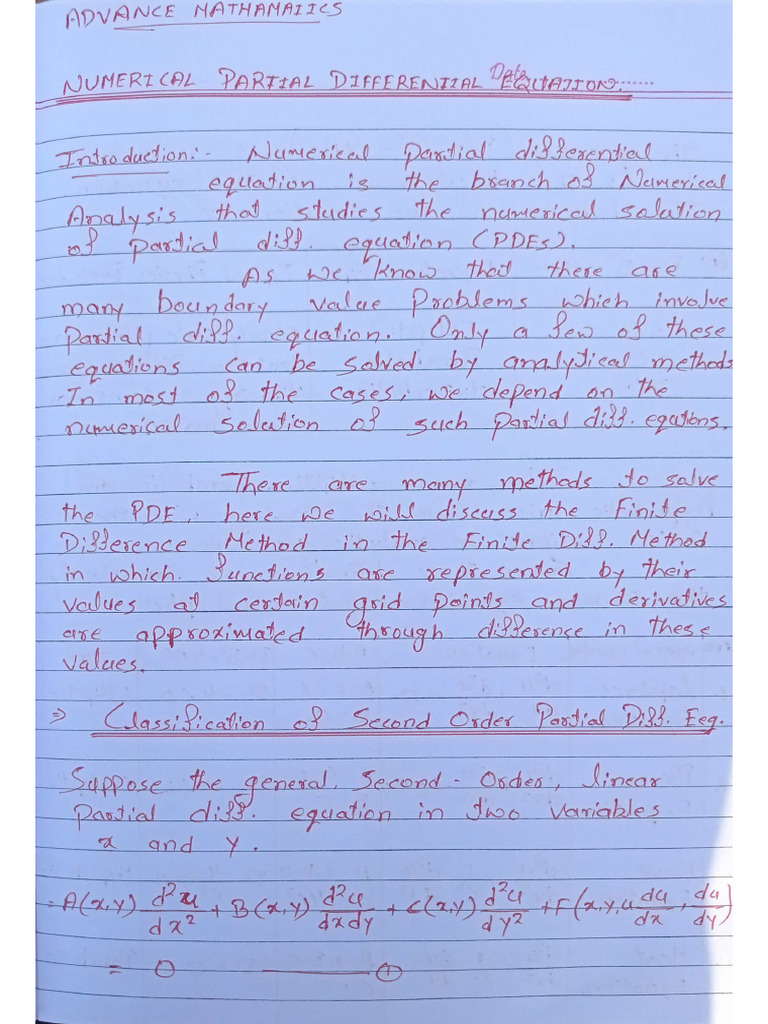 ADVANCE MATHAMAIICS
NUMERICAL PARTIAL DIFFERENTIAL EQUATION.
Date.......
Introduction:- Numerical Partial differential
equation is the branch of Numerical
Analysis that studies the numerical solution
of partial diff. equation (PDEs).
As we know that there are
many boundary value Problems which involve
Partial diff. equation. Only a few of these
equations can be solved by analytical methods
In most of the cases, we depend on the
numerical solution of such partial diff. eqations.
There are many methods to solve
the PDE, here we will discuss the Finite
Difference Method in the Finite Diff. Method
in which functions are represented by their
values at certain grid points and derivatives
are approximated through difference in these
values.
⇒ Classification of Second Order Partial Diff. Eeq.
Suppose the general, Second - Order, linear
Partial diff. equation in two variables
x and y.
= A(x,y) d²u/dx² + B(x,y) d²u/dxdy + C(x,y) d²u/dy² + F(x,y,u du/dx, du/dy)
= 0 ——— ①